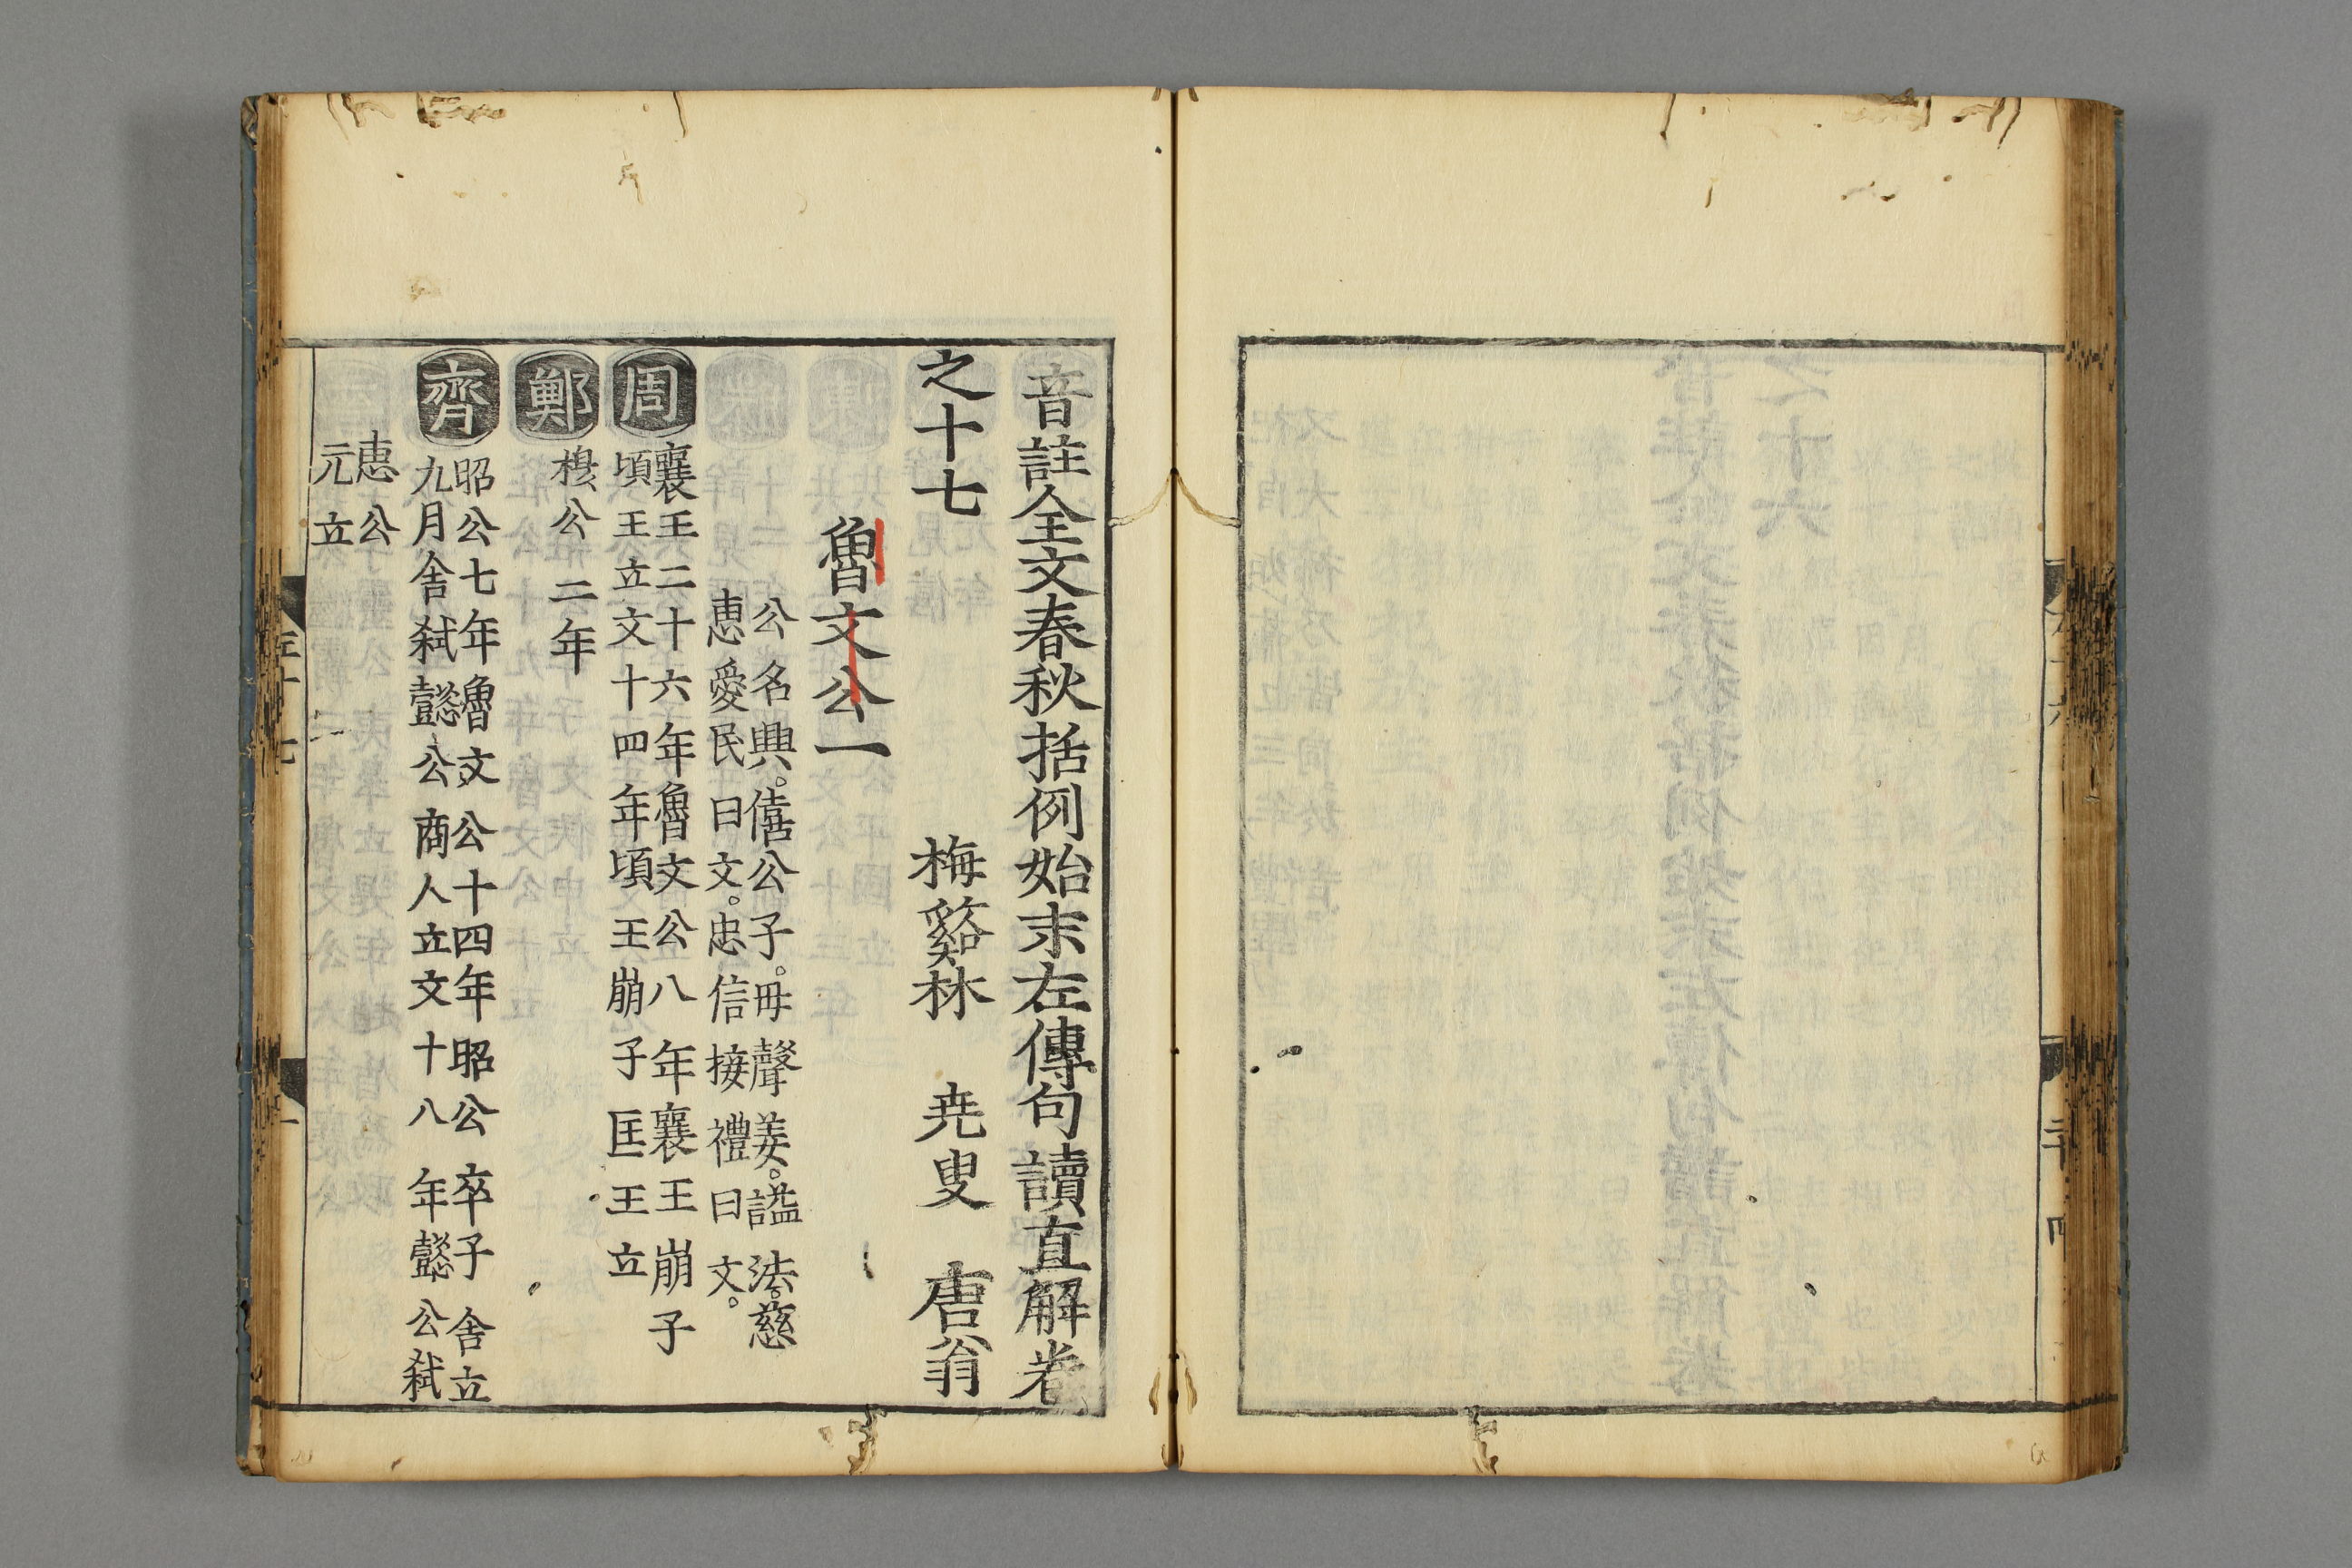 音註全文春秋括例始末左傳句讀直解卷
之十七　梅谿林　堯叟　唐翁
魯文公一
公名興。僖公子。毋聲姜。謚法。慈
惠愛民曰文。忠信接禮曰文。
周
襄王二十六年魯文公八年襄王崩子
頃王立文十四年頃王崩子匡王立
鄭
穆公二年
齊
昭公七年魯文公十四年昭公卒子舍立
九月舍弑懿公商人立文十八年懿公弑
惠公
元立